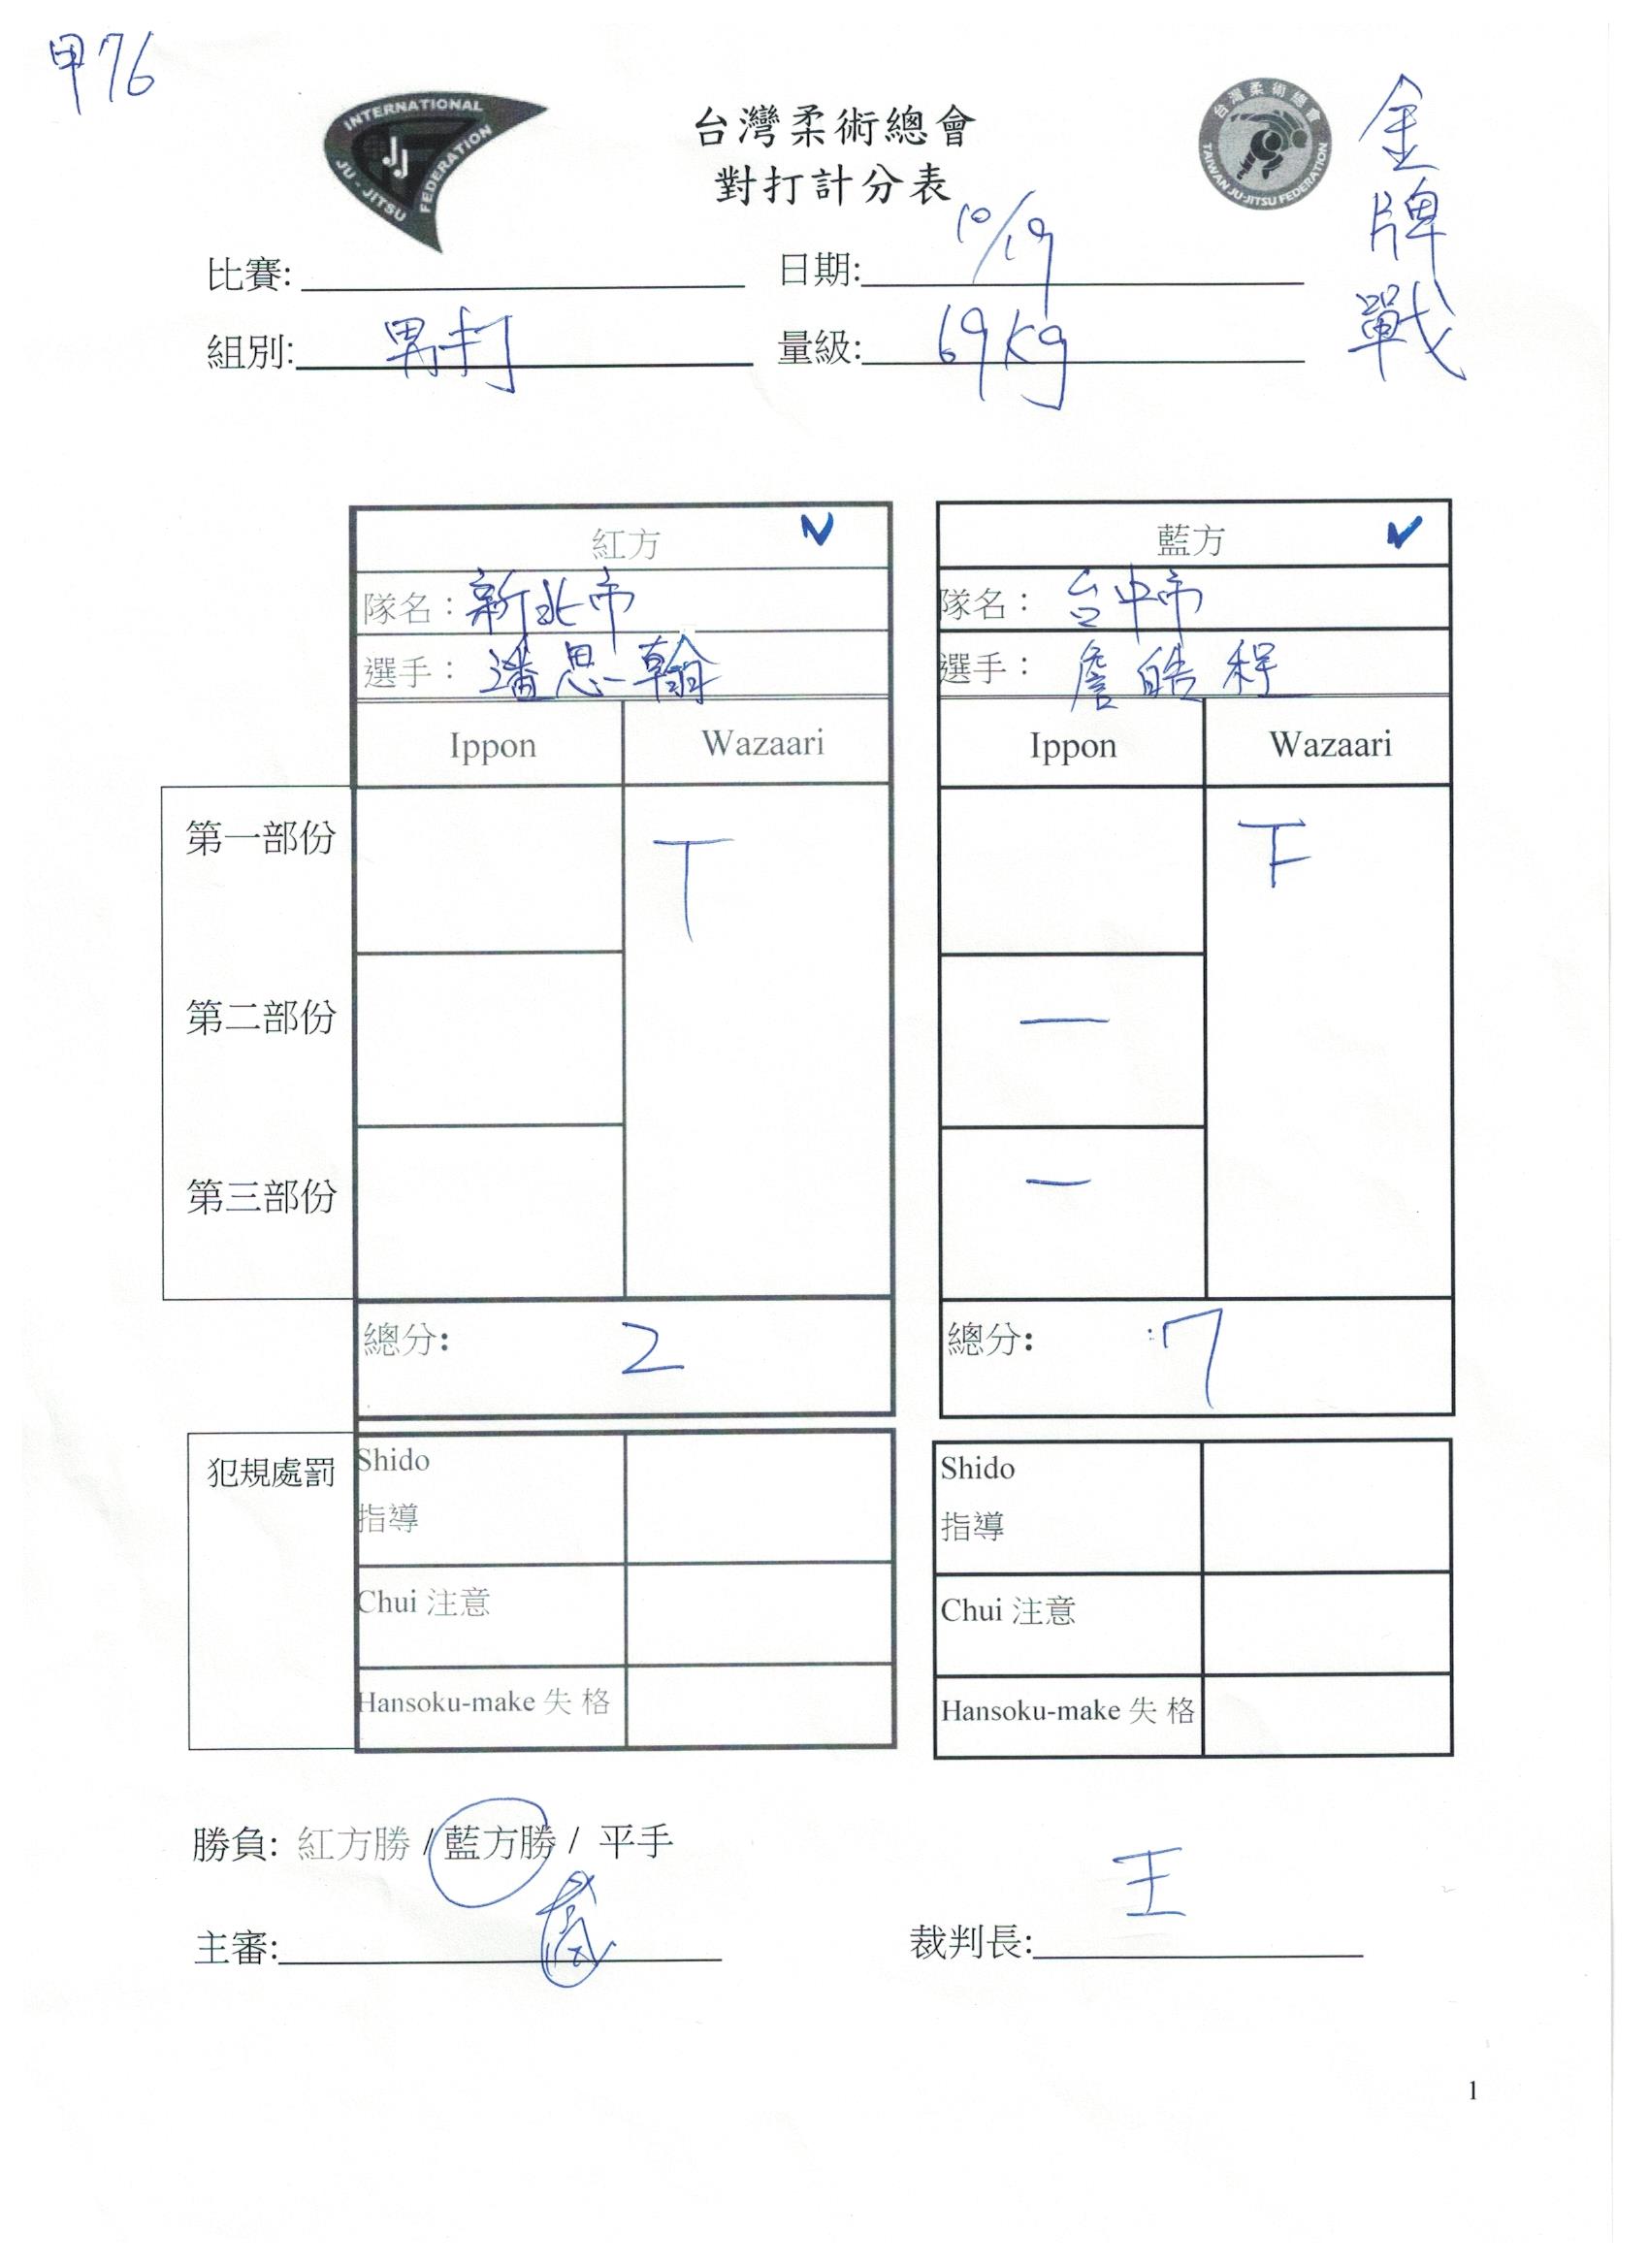 甲76
INTERNATIONAL
JU-JITSU
FEDERATION
JJ
台灣柔術總會
對打計分表
台灣柔術總會
TAIWAN JU-JITSU FEDERATION
金牌戰
比賽:
日期: 10/19
組別: 男打
量級: 69kg
紅方
藍方
隊名：新北市
隊名：台中市
選手：潘思翰
選手：詹皓程
Ippon Wazaari
Ippon Wazaari
第一部份 T
下
第二部份 一
第三部份 一
總分: 2
總分: 7
犯規處罰
Shido
指導
Shido
指導
Chui 注意
Chui 注意
Hansoku-make 失 格
Hansoku-make 失 格
勝負: 紅方勝 / 藍方勝 / 平手
主審:
裁判長: 王
1